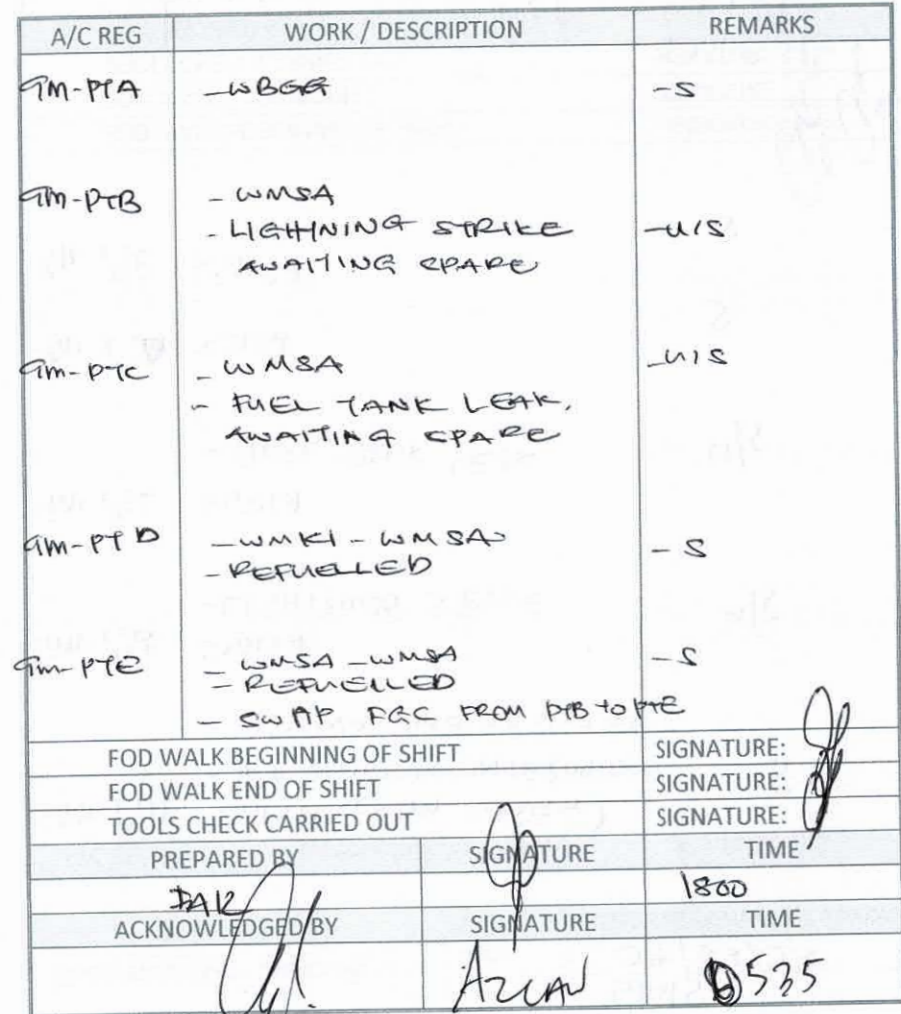 A/C REG WORK / DESCRIPTION REMARKS
9M-PTA -WBGG -S
9M-PTB - WMSA
- LIGHTNING STRIKE -U/S
AWAITING SPARE
9M-PTC - WMSA -U/S
- FUEL TANK LEAK,
AWAITING SPARE
9M-PTD - WMKI - WMSA - S
- REFUELLED
9M-PTE - WMSA - WMSA - S
- REFUELLED
- SWAP FGC FROM PTB TO PTE
FOD WALK BEGINNING OF SHIFT SIGNATURE:
FOD WALK END OF SHIFT SIGNATURE:
TOOLS CHECK CARRIED OUT SIGNATURE:
PREPARED BY SIGNATURE TIME
1800
ACKNOWLEDGED BY SIGNATURE TIME
AZLAN 0535